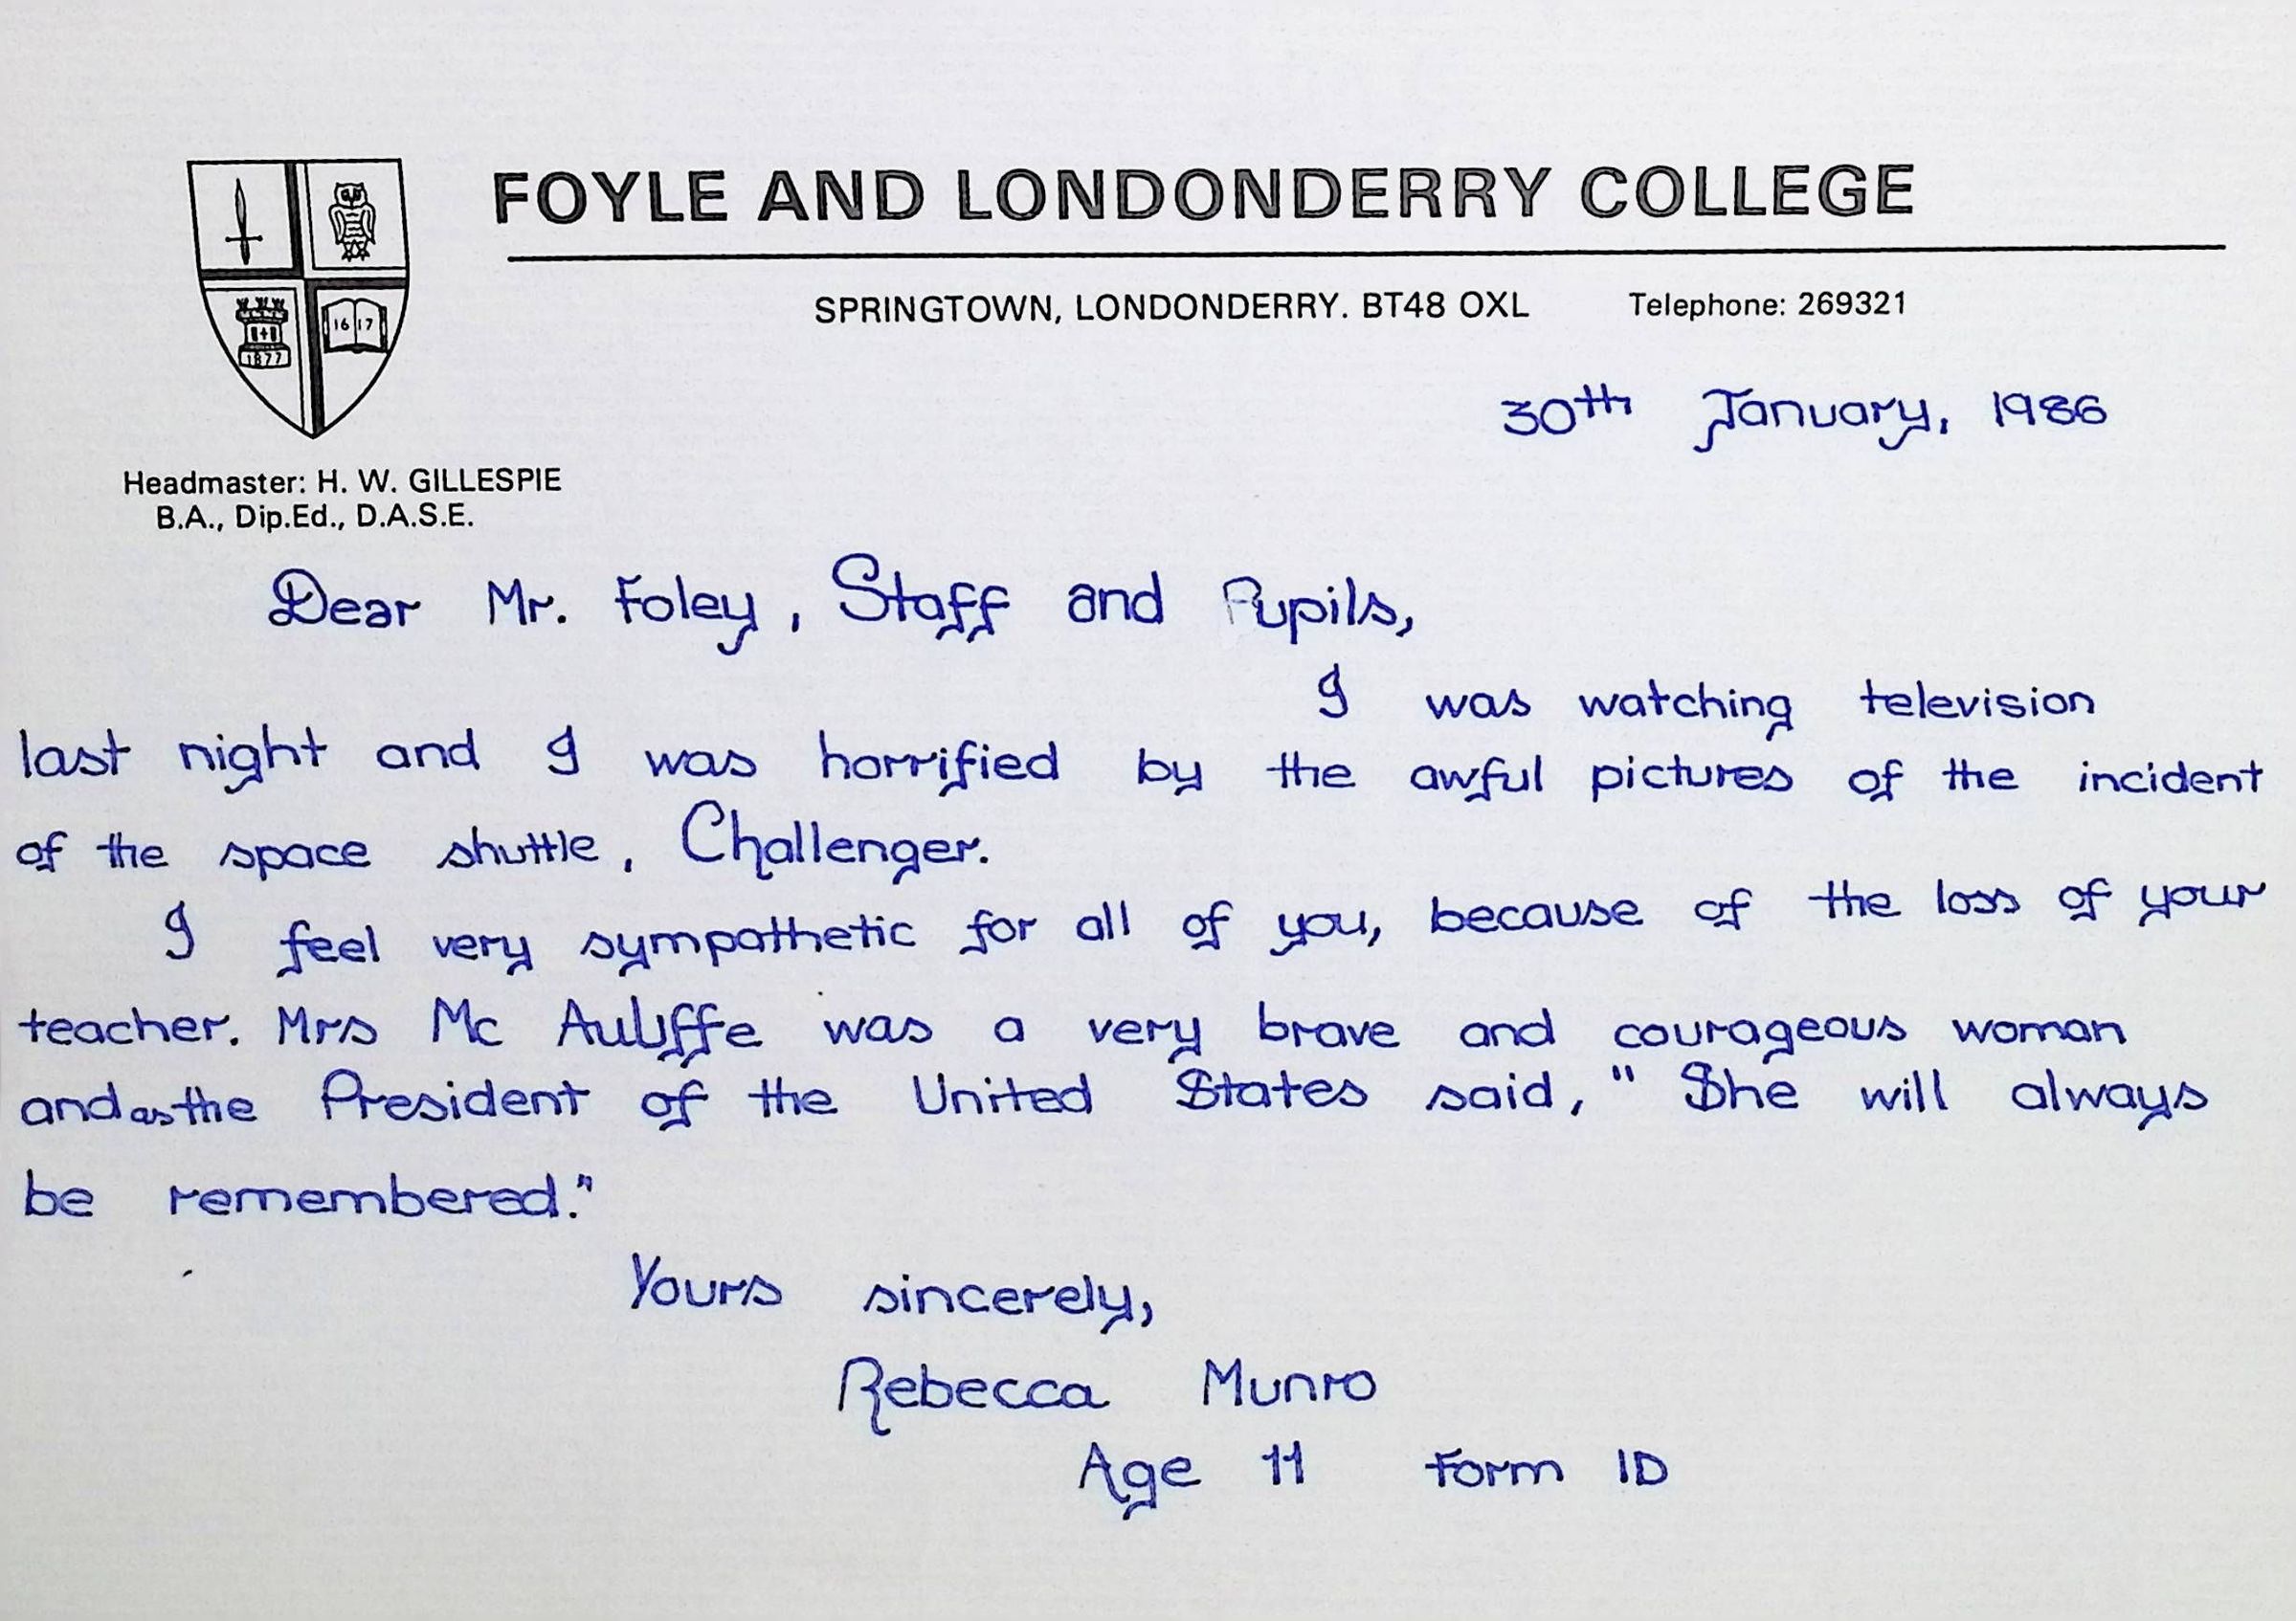 FOYLE AND LONDONDERRY COLLEGE
SPRINGTOWN, LONDONDERRY. BT48 OXL Telephone: 269321
1617
1877
30th January, 1986
Headmaster: H. W. GILLESPIE
B.A., Dip.Ed., D.A.S.E.
Dear Mr. Foley, Staff and Pupils,
I was watching television
last night and I was horrified by the awful pictures of the incident
of the space shuttle, Challenger.
I feel very sympathetic for all of you, because of the loss of your
teacher. Mrs Mc Auliffe was a very brave and courageous woman
and as the President of the United States said, " She will always
be remembered."
Yours sincerely,
Rebecca Munro
Age 11 Form 1D